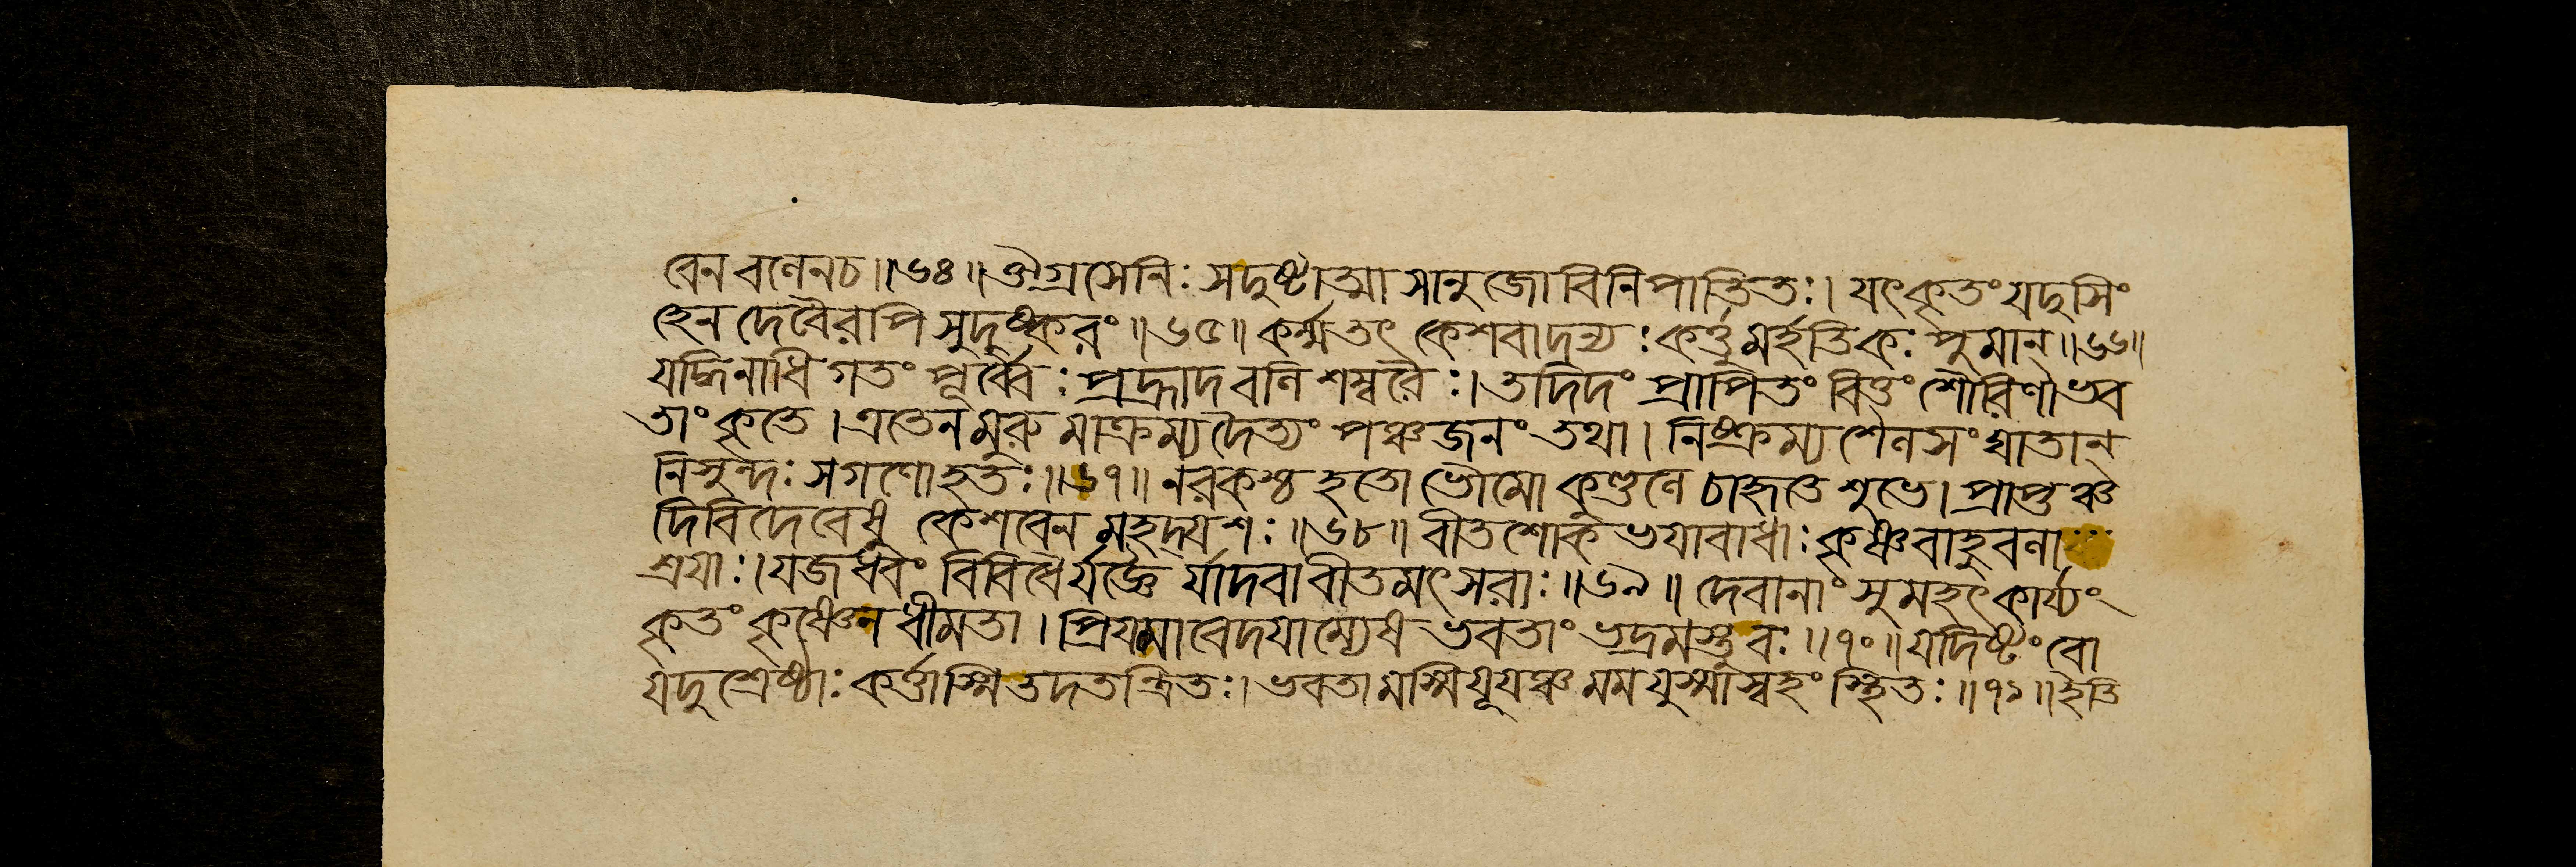 বেন বণেনচ॥৬৪॥ঔগ্রসেনিঃ সদুষ্টাত্মা সানুজো বিনিপাতিতঃ। যৎকৃতং যদুসিং
হেন দেবৈরাপি সুদুষ্করং॥৬৫॥ কর্ম্মতৎ কেশবাদন্যঃ কর্ত্তুমর্হতি কঃ পুমান্॥৬৬॥
যদ্ধিনাধি গতং পূর্ব্বৈঃ প্রহ্লাদ বনি শম্বরৈঃ। তদিদং প্রাপিতং বিত্তং শৌরিণা ভব
তাং কৃতে। এতেন মুরু মাক্রম্য দৈত্যং পঞ্চজনং তথা। নিষ্ক্রম্য শৈনসংঘাতান্
নিসুন্দঃ সগণোহতঃ॥৬৭॥ নরকশ্চ হতো ভৌমো কুণ্ডনে চাহৃতে শুভে। প্রাপ্তঞ্চ
দিবি দেবেষু কেশবেন মহদ্যশঃ॥৬৮॥ বীতশোক ভযাবাধাঃ কৃষ্ণবাহুবনা
শ্রযাঃ। যজধ্বং বিবিধৈর্যজ্ঞৈ র্যাদবা বীতমৎসরাঃ॥৬৯॥ দেবানাং সুমহৎকার্য্যং
কৃতং কৃষ্ণেন ধীমতা। প্রিযমাবেদযাম্যেষ ভবতাং ভদ্রমস্তুবঃ॥৭০॥ যদিষ্টং বো
যদুশ্রেষ্ঠাঃ কর্ত্তাস্মি তদতন্ত্রিতঃ। ভবতামস্মি যূযঞ্চ মম যুস্মাস্বহং স্থিতঃ॥৭১॥ ইতি